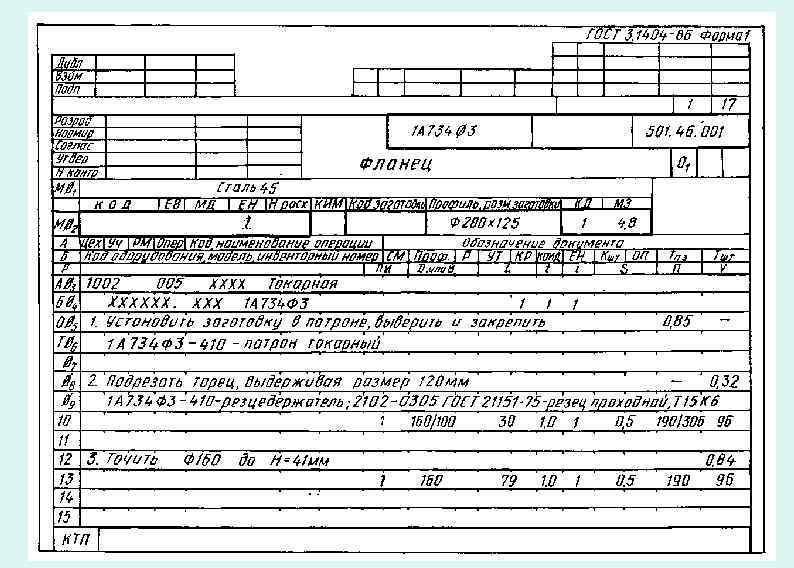 ГОСТ 3.1404-86 Форма 1
Дубл
Взам
Подп
1 17
Разраб
Нормир
Соглас
Утвер
Н контр
1А734Ф3 501.46.001
Фланец 0₁
МФ₁ Сталь 45
код ЕВ МД ЕН Н расх КИМ Код заготовки Профиль, разм заготовки КД МЗ
МФ₂ 1 Ф200×125 1 4,8
А Цех Уч РМ Опер Код, наименование операции Обозначение документа
Б Код оборудования, модель, инвентарный номер СМ Проф. Р УТ КР КОИД ЕН Кшт ОП Тпз Тшт
Р ПИ D или B L t i S П V
АФ₃ 1002 005 ХХХХ Токарная
БФ₄ ХХХХХХ. ХХХ 1А734Ф3 1 1 1
ОФ₅ 1. Установить заготовку в патроне, выверить и закрепить 0,85 —
ТФ₆ 1А734Ф3-410 - патрон токарный
Ф₇
Ф₈ 2. Подрезать торец, выдерживая размер 120мм — 0,32
Ф₉ 1А734Ф3-410-резцедержатель; 2102-0305 ГОСТ 21151-75-резец проходной, Т15К6
10 1 160/100 30 1,0 1 0,5 190/306 96
11
12 3. Точить Ф160 до Н=41мм 0,84
13 1 160 79 1,0 1 0,5 190 96
14
15
КТП